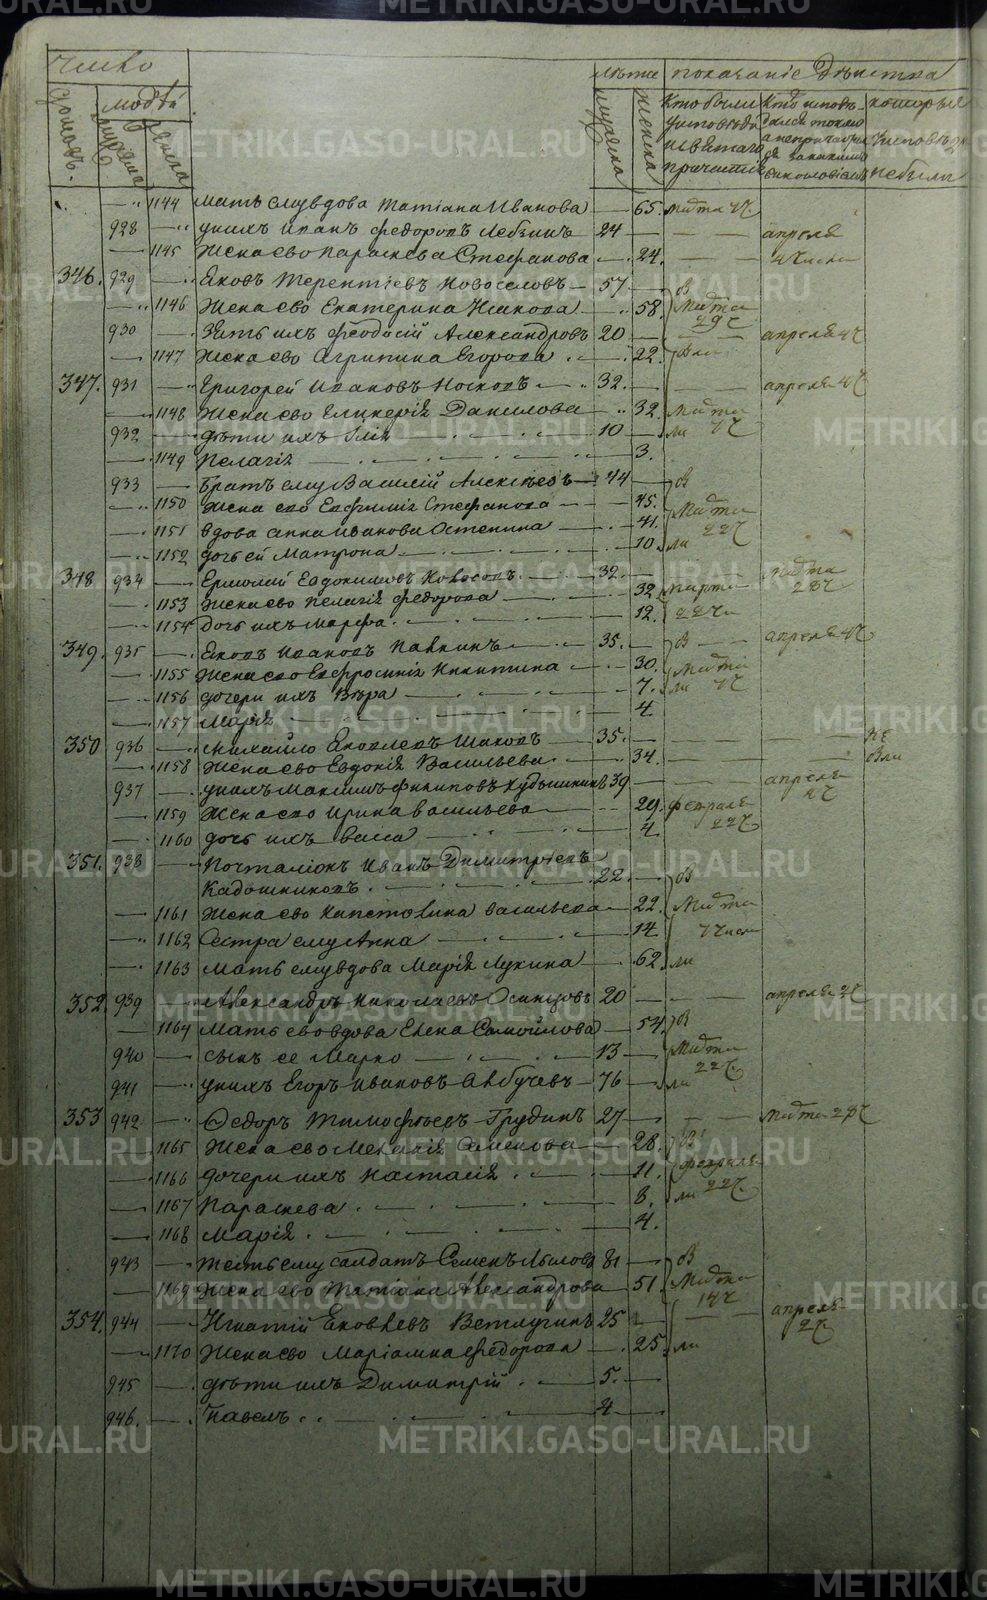 METRIKI.GASO-URAL.RU
число
людей
домовъ
мужска
женска
лѣта
показаніе дѣйства
мужска
женска
Кто были у исповѣди и святаго причастія
Кто исповѣдался токмо а не причащался
которые у исповѣди не были
1144 Мать ему вдова Татіана Иванова 65. Марта 7 ч.
928 у нихъ Иванъ Федоровъ 24 апреля
1145 Жена ево Параскева Стефанова 24. 4 числа
346. 929 Яковъ Терентіевъ Новоселовъ 57 В
1146 Жена ево Екатерина 58. Марта 29 ч
930 Зять ихъ Феодосій Александровъ 20 апреля 4 ч
1147 Жена ево Агрипина Егорова 22.
347. 931 Григорей Ивановъ Носковъ 32. апреля 4 ч
1148 Жена ево Гликерія Данилова 32 Марта
932 дѣти ихъ Илія 10 ли 7 ч
1149 Пелагія 3.
933 Братъ ему Василій Алексѣевъ 44 В
1150 Жена ево Евфимія Стефанова 45. Марта
1151 вдова Анна Иванова 41. 22 ч
1152 дочь ей Матрона 10. ли
348 934 Ермолай Евдокимовъ 32. Марта 28 ч
1153 Жена ево Пелагія Федорова 32 Марта
1154 Дочь ихъ Марфа 12. 22 ч
349. 935 Яковъ Ивановъ 35. В апреля 4 ч
1155 Жена ево Евфросинія Никитина 30. Марта
1156 дочери ихъ Вѣра 7. ли 7 ч
1157 Марія 4.
350 936 Михайло Яковлевъ 35. не
1158 Жена ево Евдокія Васильева 34. были
937 у нихъ Максимъ Филиповъ 39 апреля 4 ч
1159 Жена ево Ирина Васильева 29. февраля
1160 дочь ихъ Васса 4. 22 ч
351. 938 Почталіонъ Иванъ Димитріевъ
Кадошниковъ. 22. В
1161 Жена ево Капетолина Васильева 22. Марта
1162 Сестра ему Анна 14 7 числ
1163 Мать ему вдова Марія Лукина 62. ли
352. 939 Александръ Николаевъ Осинцовъ 20 апреля 2 ч
1164 Мать ево вдова Елена Самойлова 54. В
940 сынъ ее Марко 13 Марта 22 ч.
941 у нихъ Егоръ Ивановъ 76 ли
353 942 Федоръ Тимофѣевъ Грудинъ 27 Марта 28 ч
1165 Жена ево Меланія Семенова 28. В
1166 дочери ихъ Настасія 11. февраля
1167 Параскева 8. ли 22 ч.
1168 Марія 4.
943 Тесть ему солдатъ Семенъ 81 В
1169 Жена ево Татіана Александрова 51. Марта 14 ч
354. 944 Игнатій Яковлевъ Ветлугинъ 25 апреля 2 ч
1170 Жена ево Маріамна Федорова 25. ли
945 дѣти ихъ Димитрій 5.
946. Павелъ 4